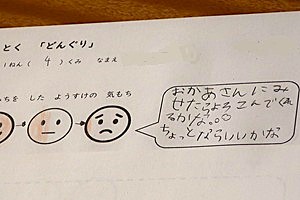 とく 「どんぐり」
1ねん ( 4 ) くみ なまえ
ちを した ようすけの 気もち
おかあさんにみ
せたらよろこんでくれ
るかな。
ちょっとならいいかな